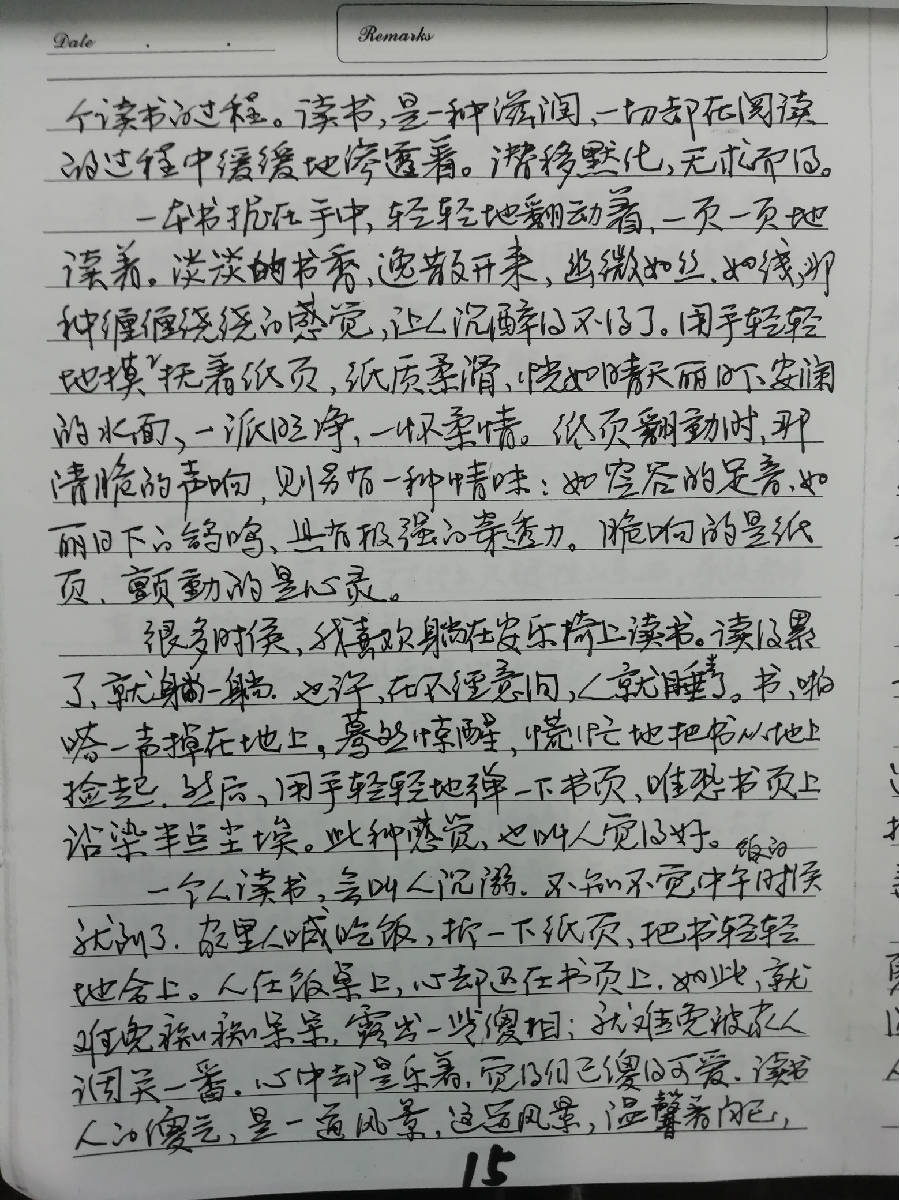 Date . .
Remarks
个读书的过程。读书,是一种滋润,一切都在阅读
的过程中缓缓地渗透着。潜移默化,无求而得。
一本书抚在手中,轻轻地翻动着,一页一页地
读着。淡淡的书香,逸散开来,丝微如丝、如线,那
种缠缠绕绕的感觉,让人沉醉得不得了。用手轻轻
地摸抚着纸页,纸质柔滑,恍如晴天丽日下,安澜
的水面,一派明净,一怀柔情。纸页翻動时,那
清脆的声响,则另有一种情味:如空谷的足音,如
丽日下的鸽鸣,具有极强的穿透力。脆响的是纸
页,颤動的是心灵。
很多时侯,我喜欢躺在安乐椅上读书。读得累
了,就躺一躺.也许,在不经意间,人就睡着了。书,啪
嗒一声掉在地上,蓦然惊醒,慌忙地把书从地上
捡起.然后,用手轻轻地弹一下书页,唯恐书页上
沾染半点尘埃。此种感觉,也叫人觉得好。
一个人读书,会叫人沉溺.不知不觉,中午饭的时侯
就到了.家里人喊吃饭,折一下纸页,把书轻轻
地合上。人在饭桌上,心却还在书页上.如此,就
难免痴痴呆呆,露出一些傻相;就难免被家人
调笑一番.心中却是乐着,觉得自己傻得可爱.读书
人的傻气,是一道风景,这道风景,温馨着自己,
15